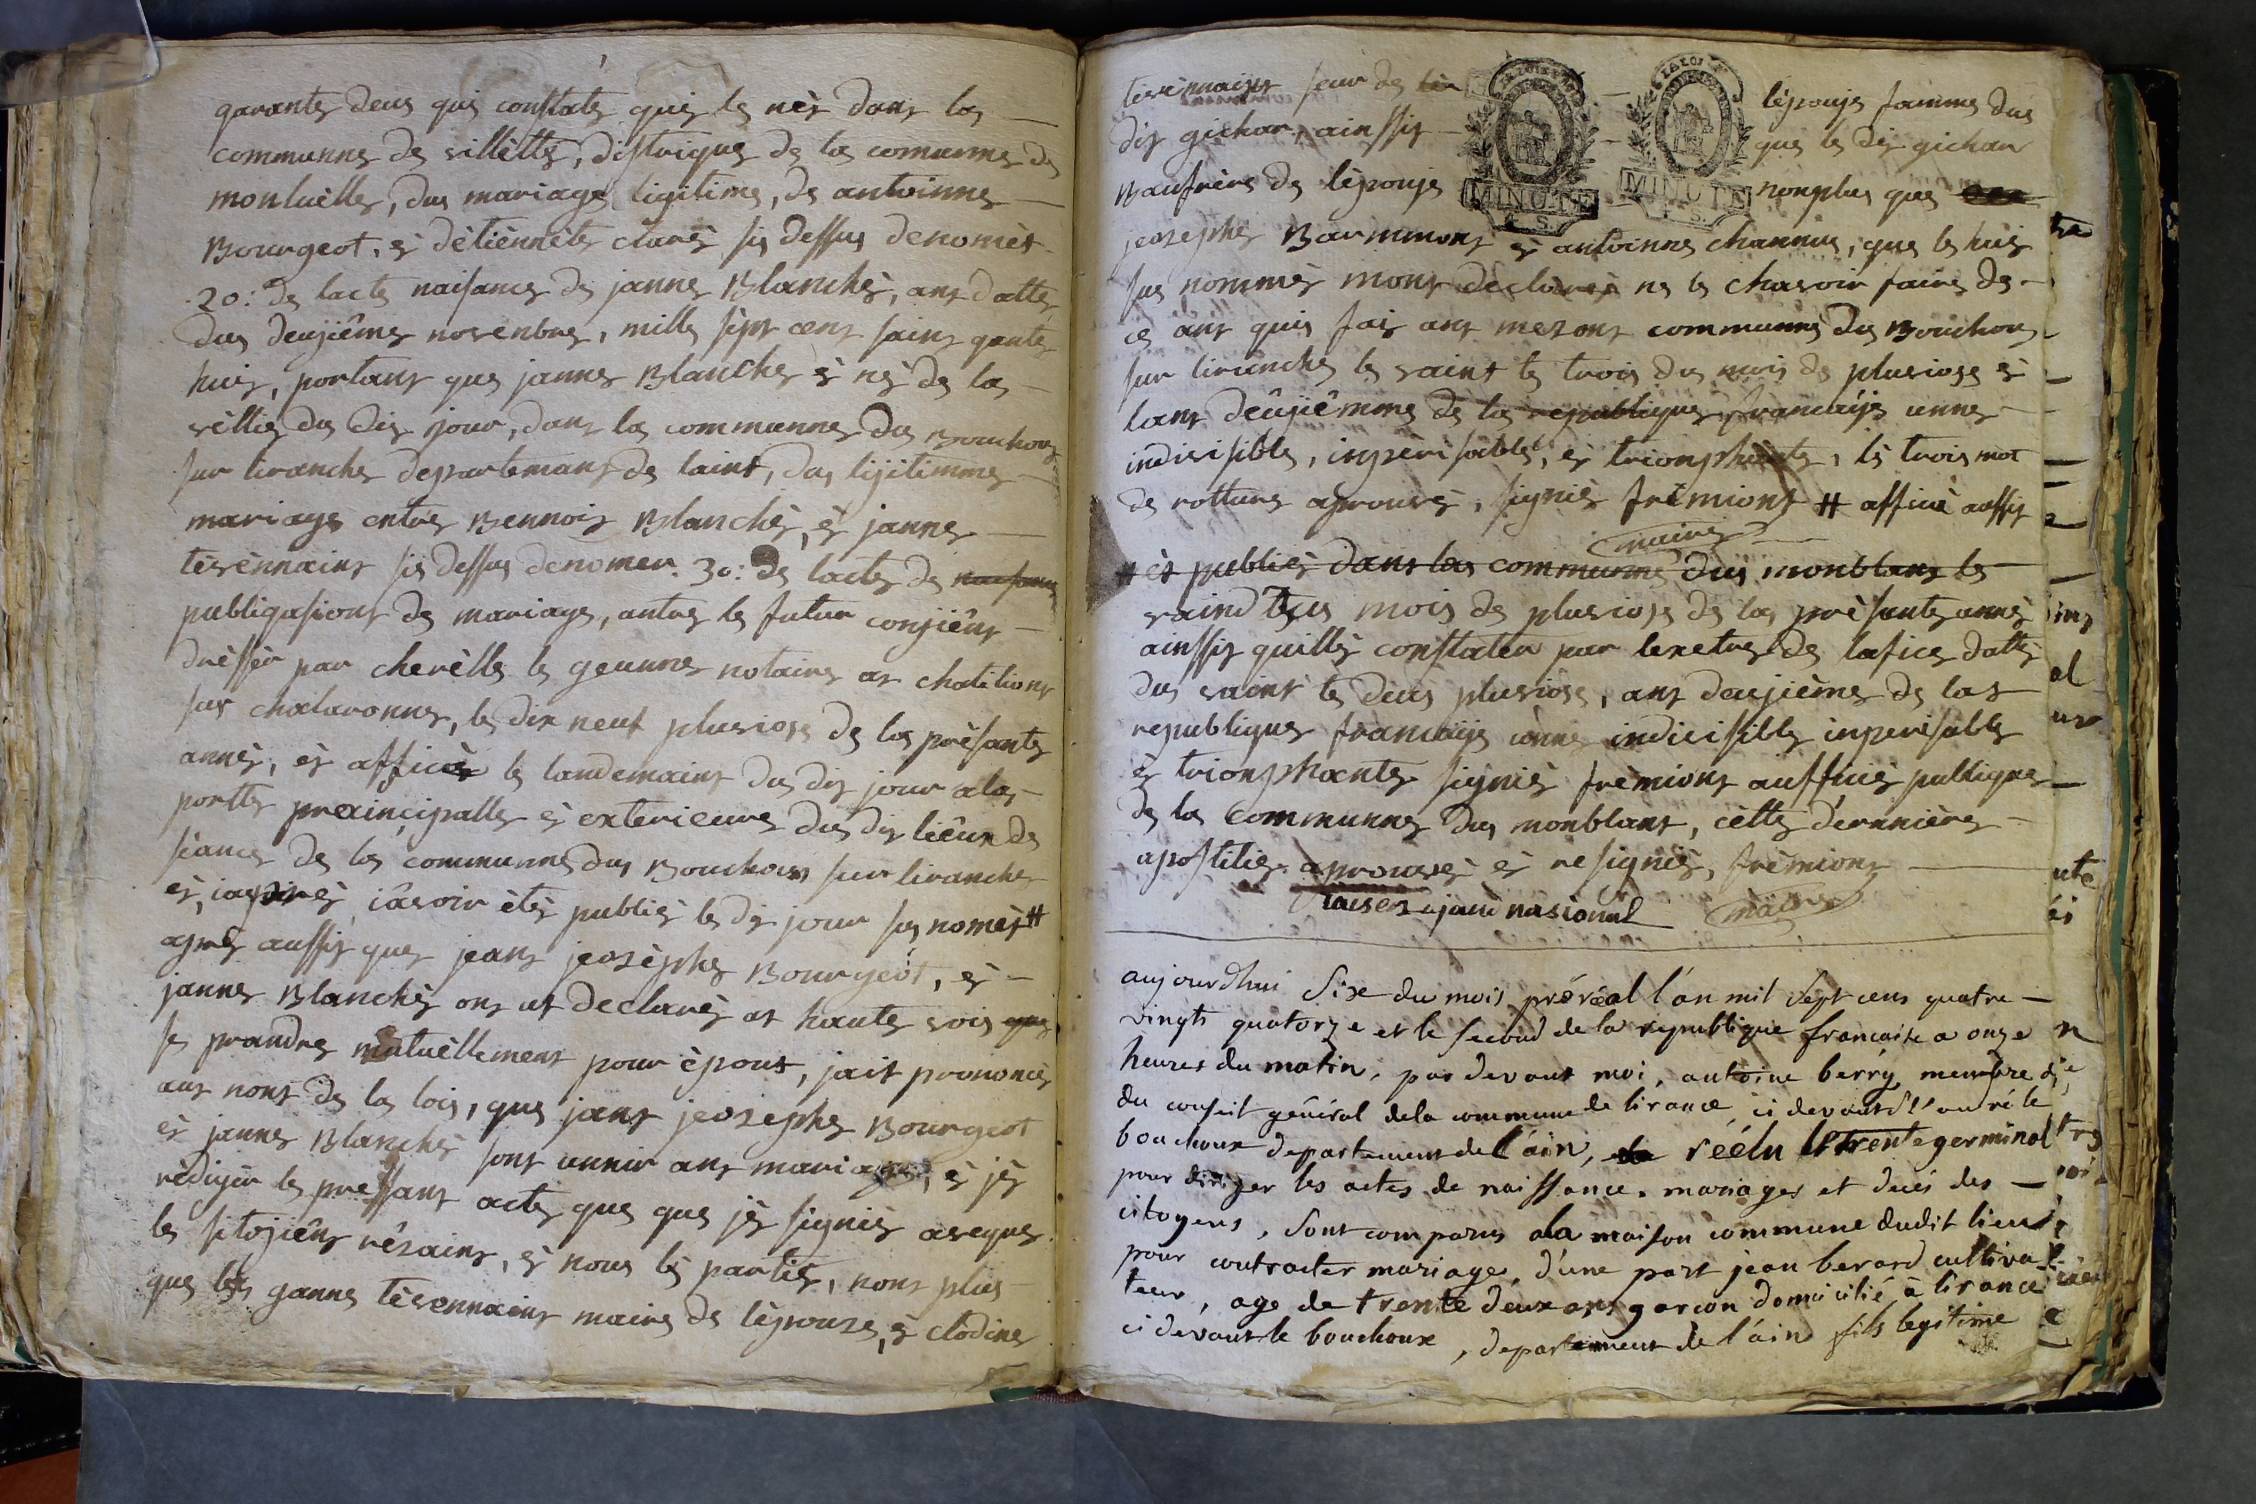 garante deus qui constate quis le nès dans las
communne de villètte, distrique de la comunne de
monluèlle, dus mariage ligitime, de antoinne
Bourgeot, è dètiènnète clarè sis dessus denomès
20: de lacte naisance de janne Blanchè, ant datte
dus deujième novenbre, mille sèpt cent saint qante
huis, portant que janne Blanche è nè de la
vèllie du dis jour, dans la communne du Bouchous
sur liranche departemant de laint, du lijitimme
mariage entre Bennois Blanchè, è janne
tèvènnaint sis dessus denomer. 30: de lacte de
publiqasiont de mariage, antre le futur conjiênt
drèsser par cherèlle le geunne notaire at chatiliont
sur chalaronne, le dix neuf pluviose de la prèsante
annè, èt afficèr le landemaint du dis jour a la
portte praincipalle è exterieure du dis lièux de
sèance de la communne du Bouchous sur liranche
è, iavoir ètè publiè le dis jour sus nomès #
aprè aussis que jeant jeosèphe Bourgeot, è
janne Blanchè ont at declarè at haute vois que
se prandre mutuèllemant pour èpout, jait prononcès
aut nont de la lois, que jeant jeosephe Bourgeot
èt janne Blanchè sont unnir ant mariage, è jè
redijèr le pressant acte que que jè signiè aveque
le sitojiènt vèraint, è nous lè partiè, nont plus
que les ganne tèvennaint maire de lèpouze, è clodine
tèvènnaint seur de lèpouje famme dus
dis gichar, ainssis que le dis gichar
Baufrère de lèpouje nonplus que
jeozephe Barmmont è antoinne channus, que le huis
sus nommès mont dèclarè ne le chavoir faire de
ce ant quis fais ant mezont communne du Bouchous
sur lirànche le vaint te trois du mois de pluviose è
lant deûjièmme de la republique francaije unne
indivisible, inpèrisable, è trionphante, lè trois mot
de rotture aprouvè, signiè frèmiont # afficè aussis
maire
# èt publiè dans la communne dus monblant le
vaind teus mois de pluviose de la prèsante annè
ainssis quillè constater par lextre de lafice datte
dus vaint te deus pluviose, ant deujième de lat
republique francaije unne indivissible inperisable
è trionphante signiè frèmiont aufficiè publique
de la communne dus monblant, cètte dèrnnière
apostilie aprouvè è resigniè, frèmiont
maire
aujourdhui Sixe du mois préréal l'an mil sept cens quatre
vingts quatorze et le second de la republique francaise a onze
heures du matin, par devant moi, antoine berry membre
du conseil général de la commune de lirance ci devant
bouchoux departement de l'ain, réélu le trente germinal
pour diriger les actes de naissance, mariages et décés des
citoyens, sont comparus a la maison commune dudit lieu
pour contracter mariage, d'une part jean berard cultiva
teur, age de trente deux ans garcon domicilié à lirance
ci devant le bouchoux, departement de l'ain fils legitime